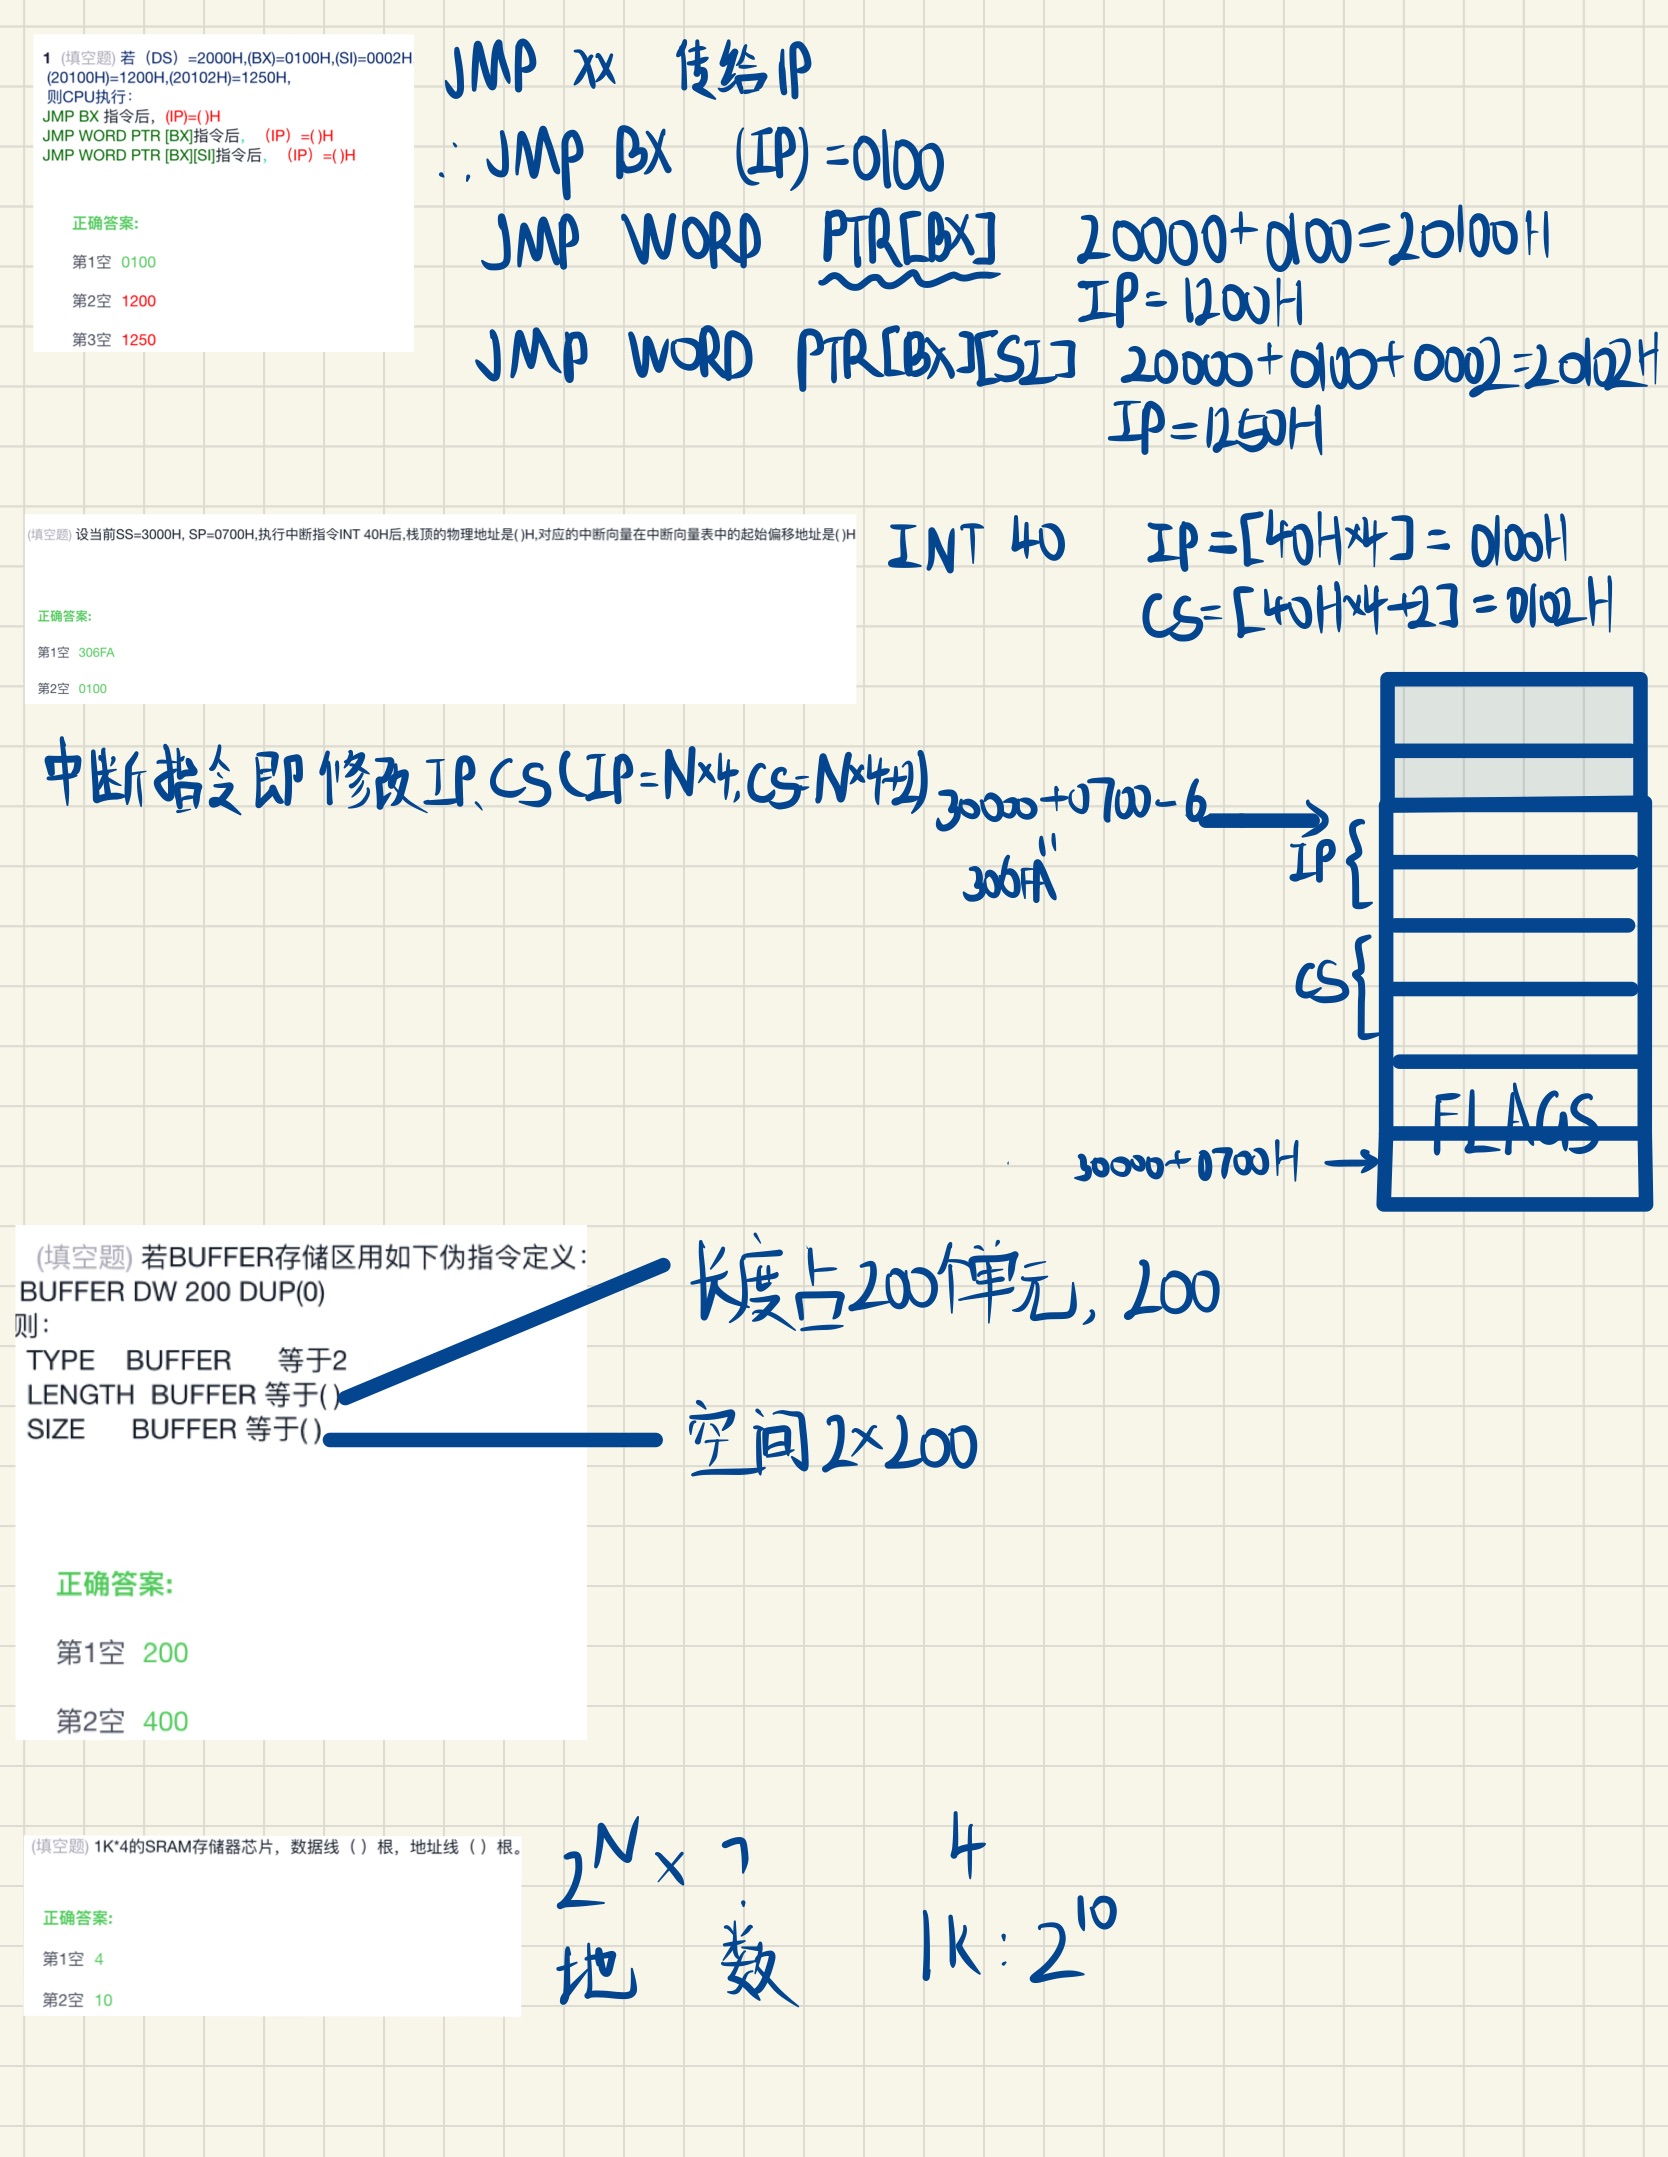 1 (填空题) 若（DS）=2000H,(BX)=0100H,(SI)=0002H
(20100H)=1200H,(20102H)=1250H,
则CPU执行：
JMP BX 指令后，(IP)=( )H
JMP WORD PTR [BX]指令后，（IP）=( )H
JMP WORD PTR [BX][SI]指令后，（IP）=( )H
正确答案:
第1空 0100
第2空 1200
第3空 1250
JMP XX 传给IP
∴JMP BX (IP)=0100
JMP WORD PTR[BX] 20000+0100=20100H
IP=1200H
JMP WORD PTR[BX][SI] 20000+0100+0002=20102H
IP=1250H
(填空题) 设当前SS=3000H, SP=0700H,执行中断指令INT 40H后,栈顶的物理地址是( )H,对应的中断向量在中断向量表中的起始偏移地址是( )H
正确答案:
第1空 306FA
第2空 0100
INT 40 IP=[40H×4]=0100H
CS=[40H×4+2]=0102H
中断指令即修改IP、CS(IP=N×4,CS=N×4+2)
30000+0700-6
"
306FA
IP{
CS{
FLAGS
30000+0700H →
(填空题) 若BUFFER存储区用如下伪指令定义：
BUFFER DW 200 DUP(0)
则：
TYPE BUFFER 等于2
LENGTH BUFFER 等于( )
SIZE BUFFER 等于( )
正确答案:
第1空 200
第2空 400
长度占200个单元, 200
空间2×200
(填空题) 1K*4的SRAM存储器芯片，数据线（ ）根，地址线（ ）根。
正确答案:
第1空 4
第2空 10
2^N × ? 4
地 数 1K: 2^10